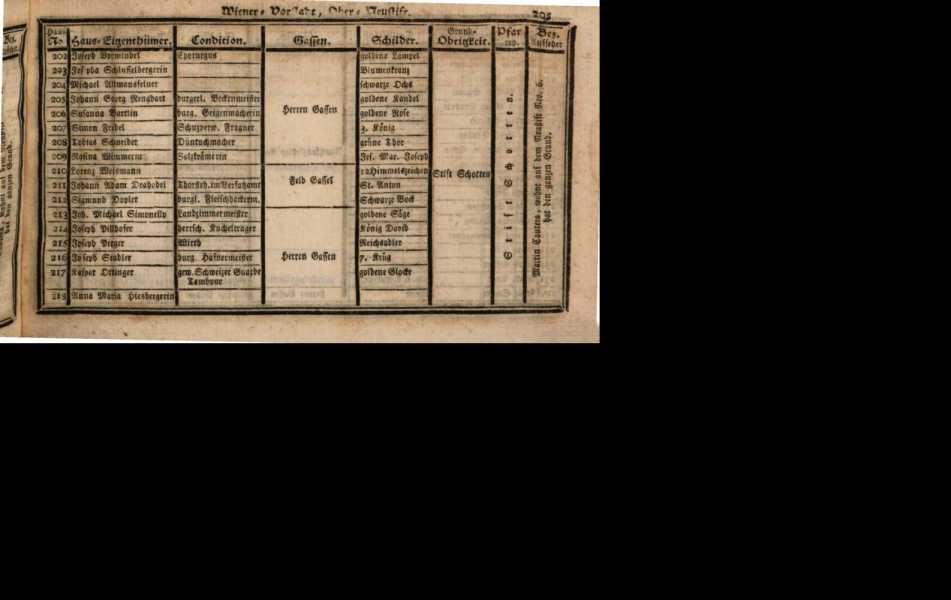 Wiener-Vorstadt, Ober-Neustift. 295
Haus No. Haus-Eigenthümer. Condition. Gassen. Schilder. Grund-Obrigkeit. Pfar Bez. Aufseher
202 Joseph goldene Lampel
203 Josepha Schlusselbergerin Blumenkranz
204 Michael schwarze Ochs
205 Johann Georg burgerl. goldene Kandel
206 Susanna Bartlin burg. Geigenmacherin goldene Rose
207 Simon Feibel Schuzverw. Fragner 3. König
Herren Gassen
208 Tobias Schneider Düntuchmacher grüne Thor
209 Rosina Wimmerin Salzkrämerin Jes. Mar. Joseph
210 Lorenz Weismann 12 Himmelszeichen
Feld Gassel
Stift Schotten
211 Johann Adam Thorsteh. im Versazamt St. Anton
212 Sigmund Dopler burgl. Schwarze Bock
213 Joh. Michael Simonelly Landzimmermeister goldene Säge
214 Joseph Pillhofer herrsch. Kucheltrager König David
215 Joseph Pirger Wirth Reichsadler
216 Joseph Stadler burg. Hafnermeister Herren Gassen 7. Krüg
217 Kaspar Ottinger gew. Schweizer Guarde goldene Glocke
Tambour
218 Anna Maria Hiesbergerin
Stift Schotten.
Martin wohnt auf dem Neustift Nro. 6.
hat den ganzen Grund.